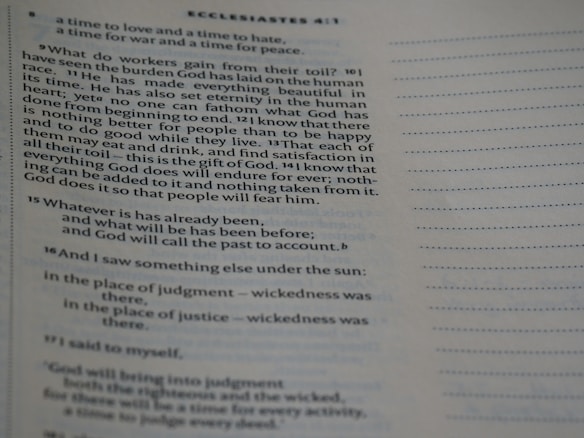 ECCLESIASTES 4:1
8 a time to love and a time to hate,
a time for war and a time for peace.
9 What do workers gain from their toil? 10 I
have seen the burden God has laid on the human
race. 11 He has made everything beautiful in
its time. He has also set eternity in the human
heart; yet a no one can fathom what God has
done from beginning to end. 12 I know that there
is nothing better for people than to be happy
and to do good while they live. 13 That each of
them may eat and drink, and find satisfaction in
all their toil – this is the gift of God. 14 I know that
everything God does will endure for ever; noth-
ing can be added to it and nothing taken from it.
God does it so that people will fear him.
15 Whatever is has already been,
and what will be has been before;
and God will call the past to account. b
16 And I saw something else under the sun:
in the place of judgment – wickedness was
there,
in the place of justice – wickedness was
there.
17 I said to myself,
‘God will bring into judgment
both the righteous and the wicked,
for there will be a time for every activity,
a time to judge every deed.’